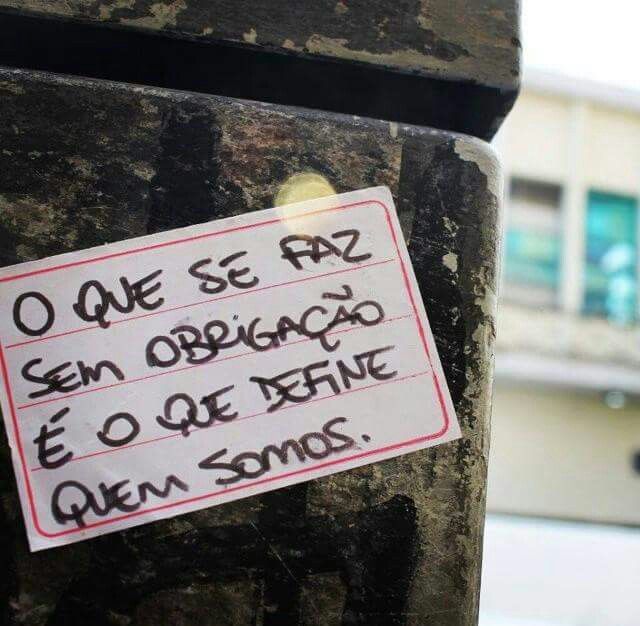 O QUE SE FAZ
SEM OBRIGAÇÃO
É O QUE DEFINE
QUEM SOMOS.